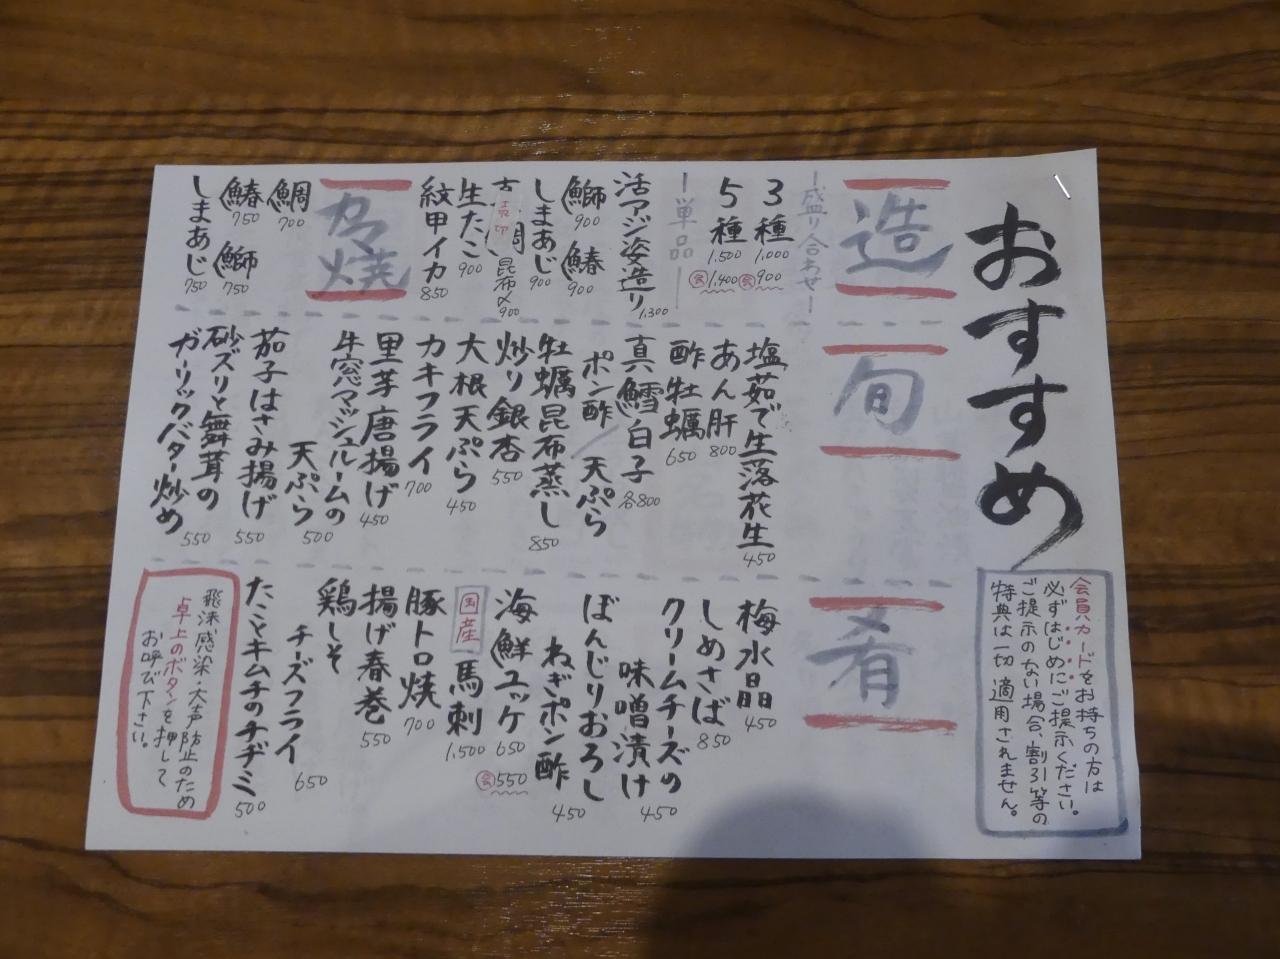 おすすめ
会員カードをお持ちの方は
必ずはじめにご提示ください。
ご提示のない場合、割引等の
特典は一切適用されません。
造
ー盛り合わせー
3種 1,000
会 900
5種 1,500
会 1,400
ー単品ー
活アジ姿造り 1,300
鰤 900
鰆 900
しまあじ 900
売切
鯛昆布〆 900
生たこ 900
紋甲イカ 850
カマ焼
鯛 700
鰆 750
鰤 750
しまあじ 750
旬
塩茹で生落花生 450
あん肝 800
酢牡蠣 650
真鱈白子 各800
ポン酢/天ぷら
牡蠣昆布蒸し 850
炒り銀杏 550
大根天ぷら 450
カキフライ 700
里芋唐揚げ 450
牛窓マッシュルームの
天ぷら 500
茄子はさみ揚げ 550
砂ズリと舞茸の
ガーリックバター炒め 550
肴
梅水晶 450
しめさば 850
クリームチーズの
味噌漬け 450
ぼんじりおろし
ねぎポン酢 450
海鮮ユッケ 650
会 550
国産
馬刺 1,500
豚トロ焼 700
揚げ春巻 550
鶏しそ
チーズフライ 650
たことキムチのチヂミ 500
飛沫感染・大声防止のため
卓上のボタンを押して
お呼び下さい。